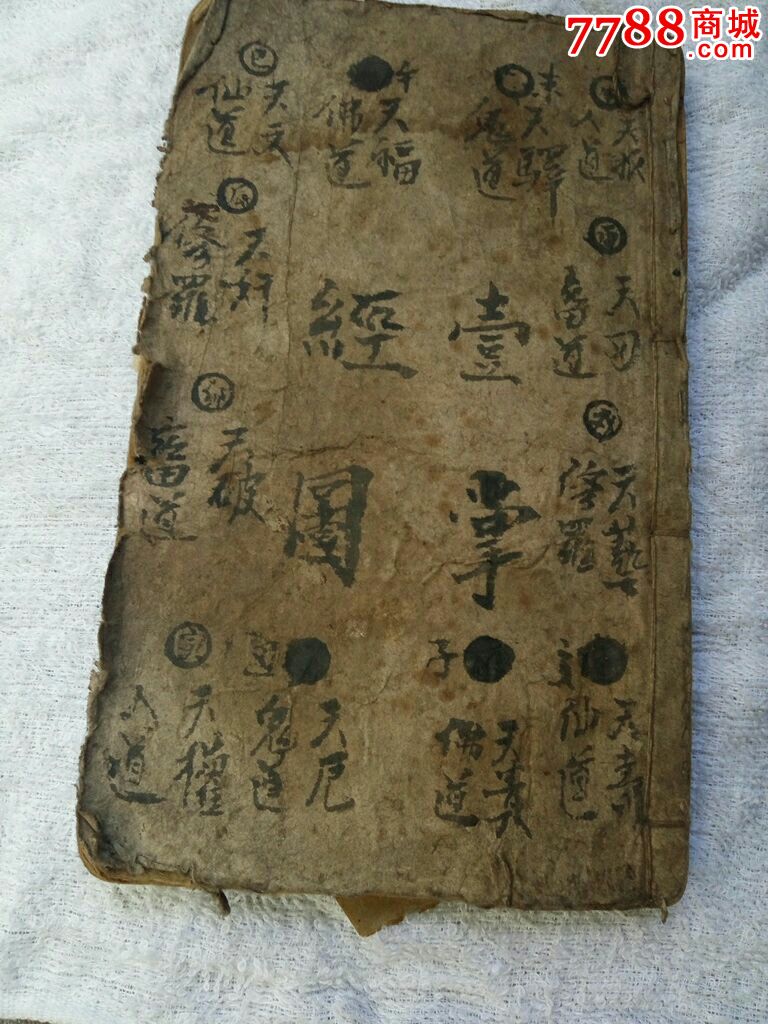 7788商城
.com
巳
天文
仙道
午
天福
佛道
未
天驛
鬼道
人道
酉
天刃
畜道
戌
天藝
修羅
天壽
仙道
子
天貴
佛道
丑
天厄
鬼道
寅
天權
人道
卯
天破
畜道
辰
天奸
修羅
壹掌
經圖